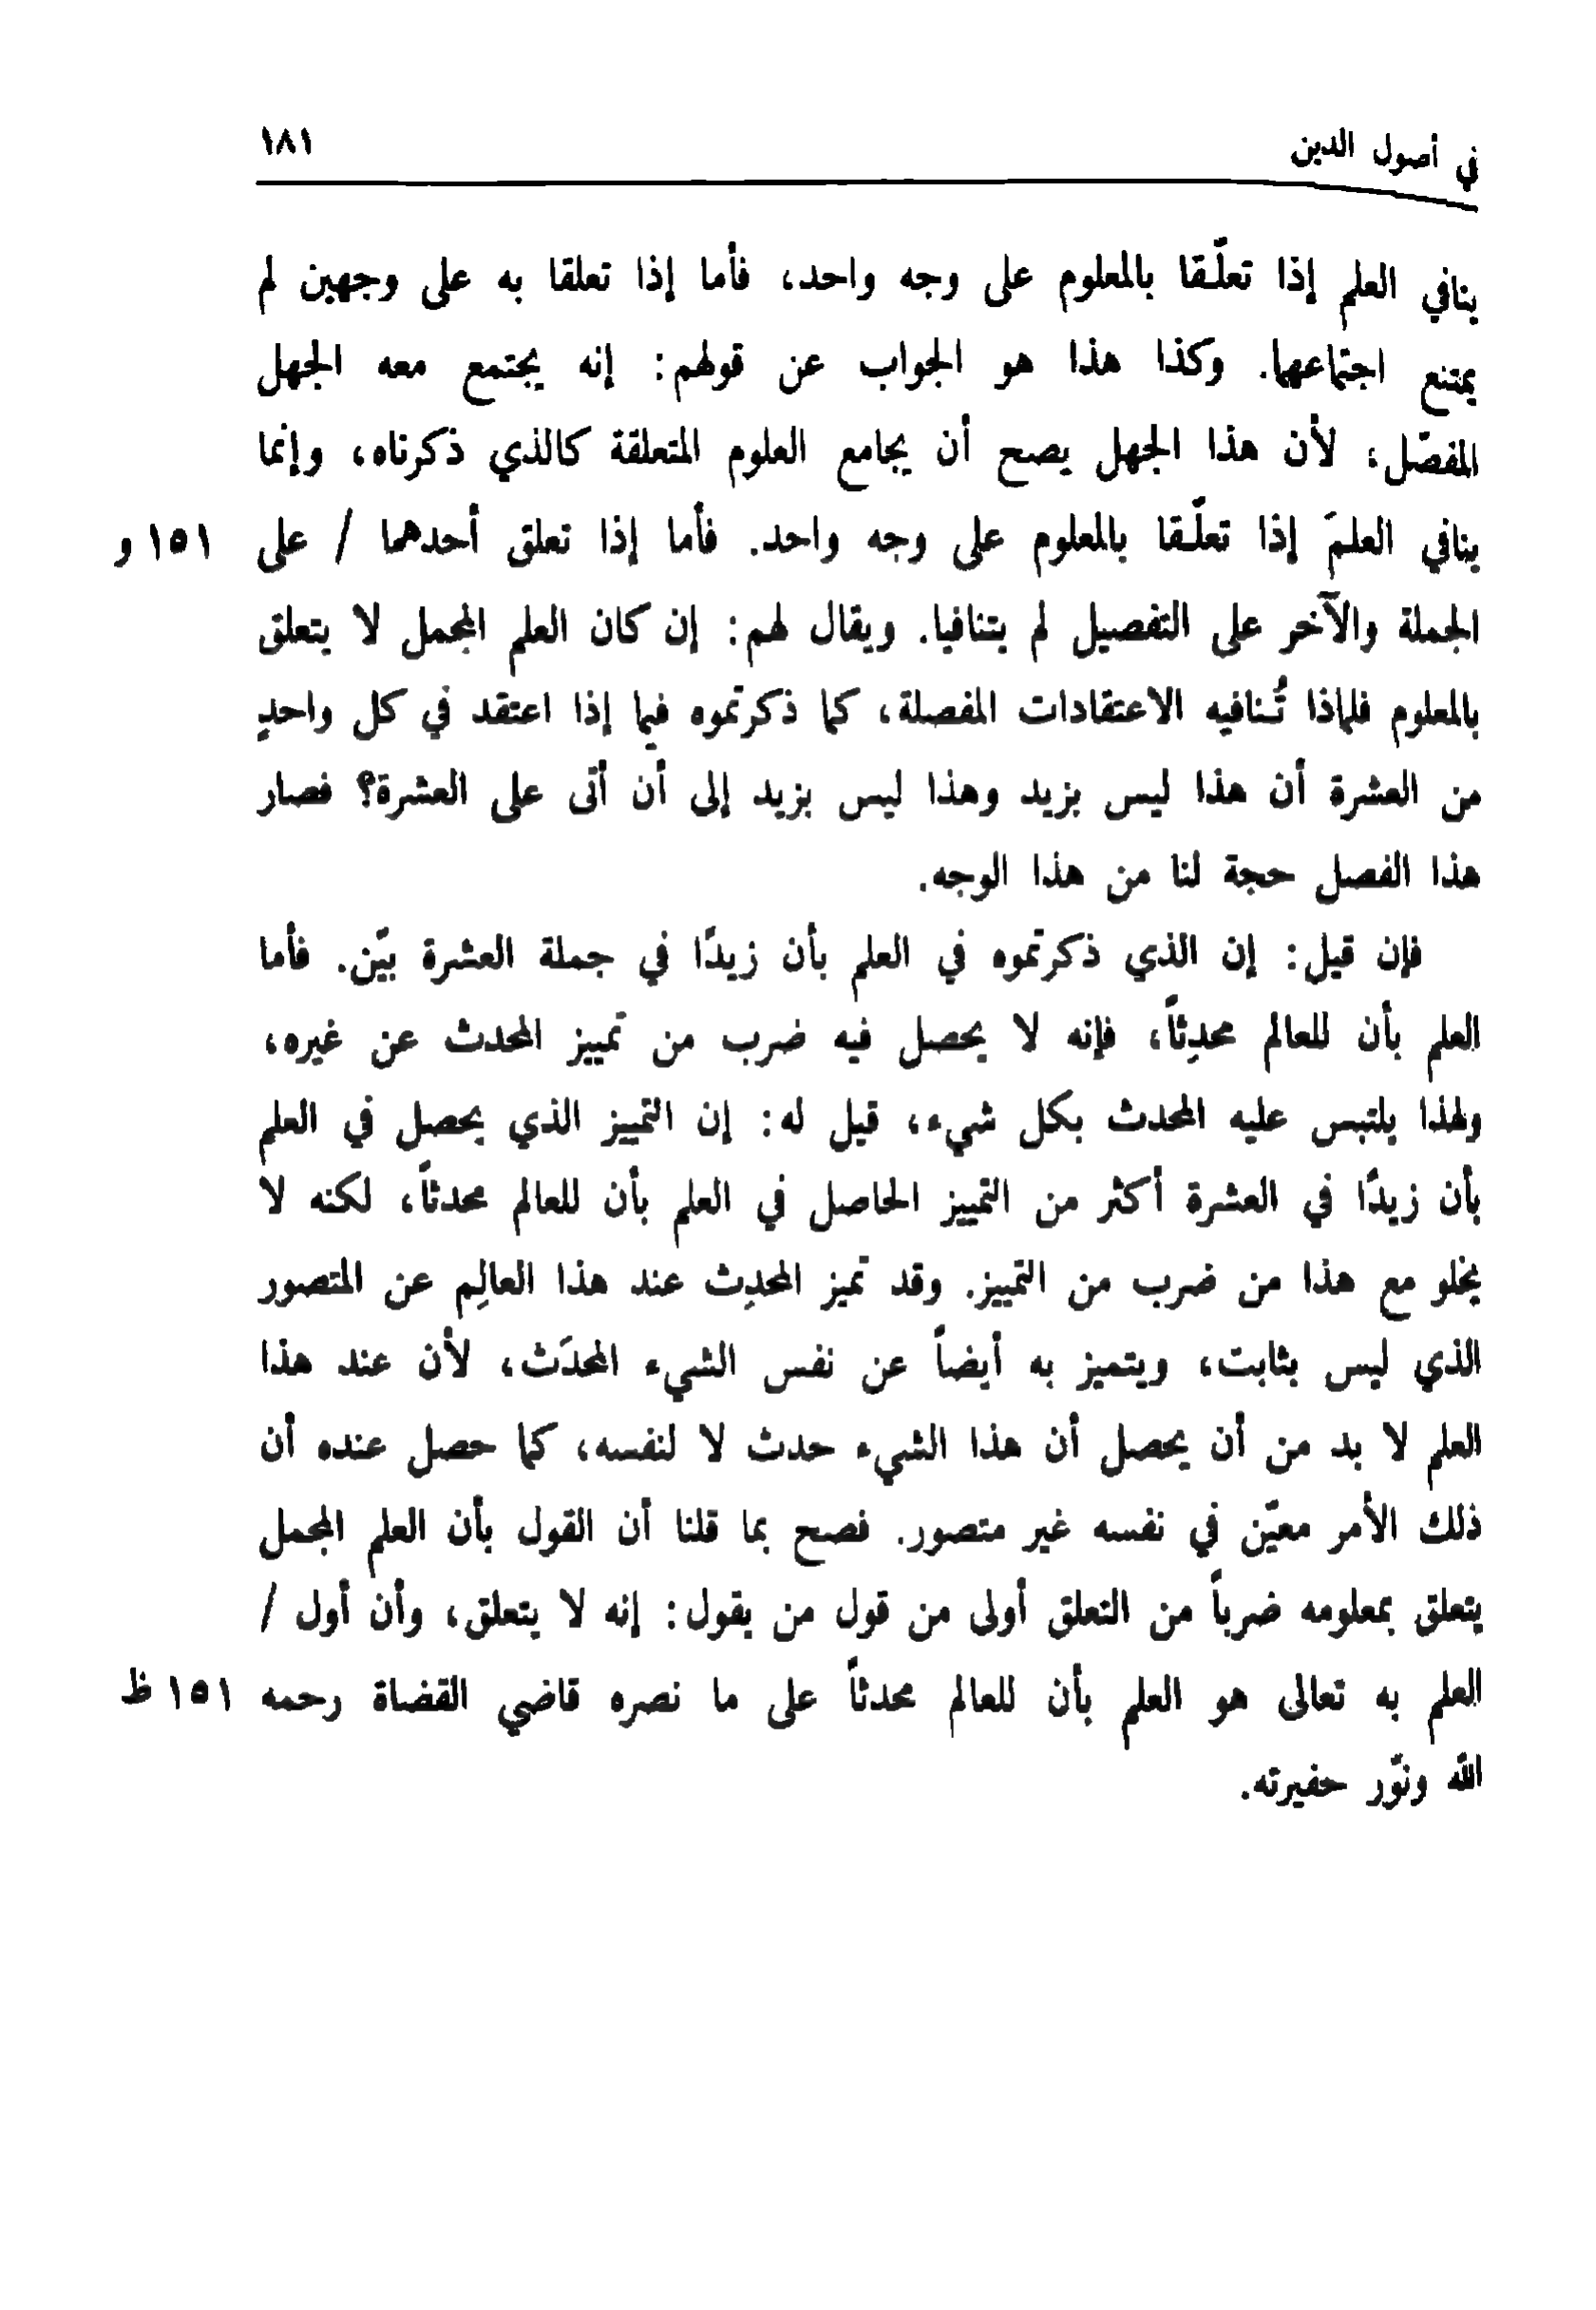 في أصول الدين ١٨١
ينافي العلم إذا تعلّقا بالمعلوم على وجه واحد، فأما إذا تعلقا به على وجهين لم
يمتنع اجتماعهما. وكذا هذا هو الجواب عن قولهم: إنه يجتمع معه الجهل
المفصّل، لأن هذا الجهل يصح أن يجامع العلوم المتعلقة كالذي ذكرناه، وإنما
ينافي العلمَ إذا تعلّقا بالمعلوم على وجه واحد. فأما إذا تعلق أحدهما / على ١٥١ و
الجملة والآخر على التفصيل لم يتنافيا. ويقال لهم: إن كان العلم المجمل لا يتعلق
بالمعلوم فلماذا تُنافيه الاعتقادات المفصلة، كما ذكرتموه فيما إذا اعتقد في كل واحدٍ
من العشرة أن هذا ليس بزيد وهذا ليس بزيد إلى أن أتى على العشرة؟ فصار
هذا الفصل حجة لنا من هذا الوجه.
فإن قيل: إن الذي ذكرتموه في العلم بأن زيدًا في جملة العشرة بيّن. فأما
العلم بأن للعالم محدِثاً، فإنه لا يحصل فيه ضرب من تمييز المحدث عن غيره،
ولهذا يلتبس عليه المحدث بكل شيء، قيل له: إن التمييز الذي يحصل في العلم
بأن زيدًا في العشرة أكثر من التمييز الحاصل في العلم بأن للعالم محدثاً، لكنه لا
يخلو مع هذا من ضرب من التمييز. وقد تميز المحدِث عند هذا العالِم عن المتصور
الذي ليس بثابت، ويتميز به أيضاً عن نفس الشيء المحدَث، لأن عند هذا
العلم لا بد من أن يحصل أن هذا الشيء حدث لا لنفسه، كما حصل عنده أن
ذلك الأمر معيّن في نفسه غير متصور. فصح بما قلنا أن القول بأن العلم المجمل
يتعلق بمعلومه ضرباً من التعلق أولى من قول من يقول: إنه لا يتعلق، وأن أول /
العلم به تعالى هو العلم بأن للعالم محدثاً على ما نصره قاضي القضاة رحمه ١٥١ ظ
الله ونوّر حفيرته.